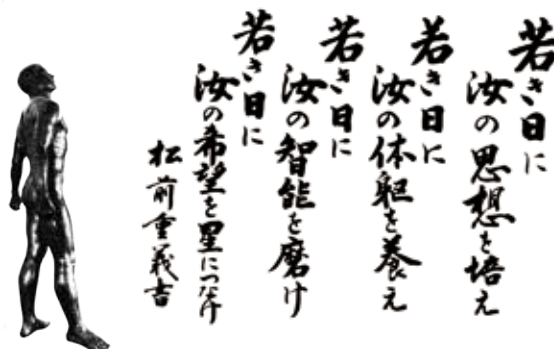 若き日に
汝の思想を培え
若き日に
汝の体躯を養え
若き日に
汝の智能を磨け
若き日に
汝の希望を星につなげ
松前重義